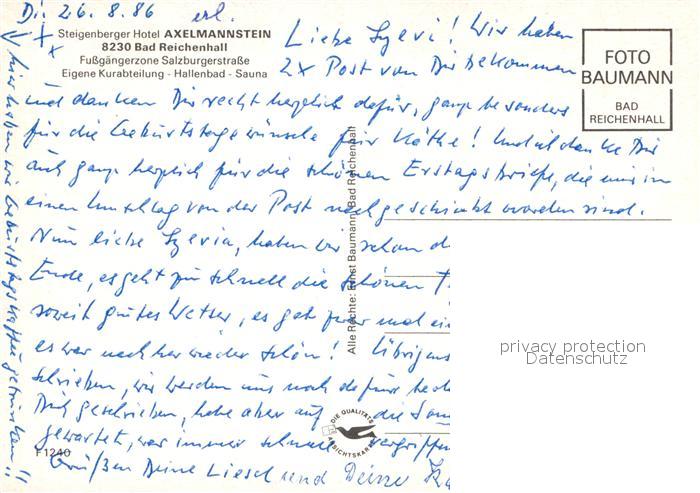 Di. 26.8.86 erl.
Steigenberger Hotel AXELMANNSTEIN
8230 Bad Reichenhall
Fußgängerzone Salzburgerstraße
Eigene Kurabteilung - Hallenbad - Sauna
FOTO
BAUMANN
BAD
REICHENHALL
Liebe Sylvi! Wir haben
2x Post von Dir bekommen
und danken Dir recht herzlich dafür, ganz besonders
für die Geburtstagswünsche für Käthe! Und ich danke Dir
auch ganz herzlich für die schönen Erstagsbriefe, die mir in
einem Umschlag von der Post nachgeschickt worden sind.
Nun liebe Sylvia, haben wir schon d
Ende, es geht zu schnell die schönen T
soweit gutes Wetter, es gab zwar mal ei
es war nachher wieder schön! Übrigens
schrieben, wir werden uns noch dafür
Dich geschrieben, habe aber auf die
gewartet, war immer schnell vergriffen
Grüßen Deine Liesel und Deine Kä
hier haben wir Geburtstagskaffee getrunken!!
Alle Rechte: Ernst Baumann, Bad Reichenhall
DIE QUALITÄTS
ANSICHTSKARTE
F1240
privacy protection
Datenschutz